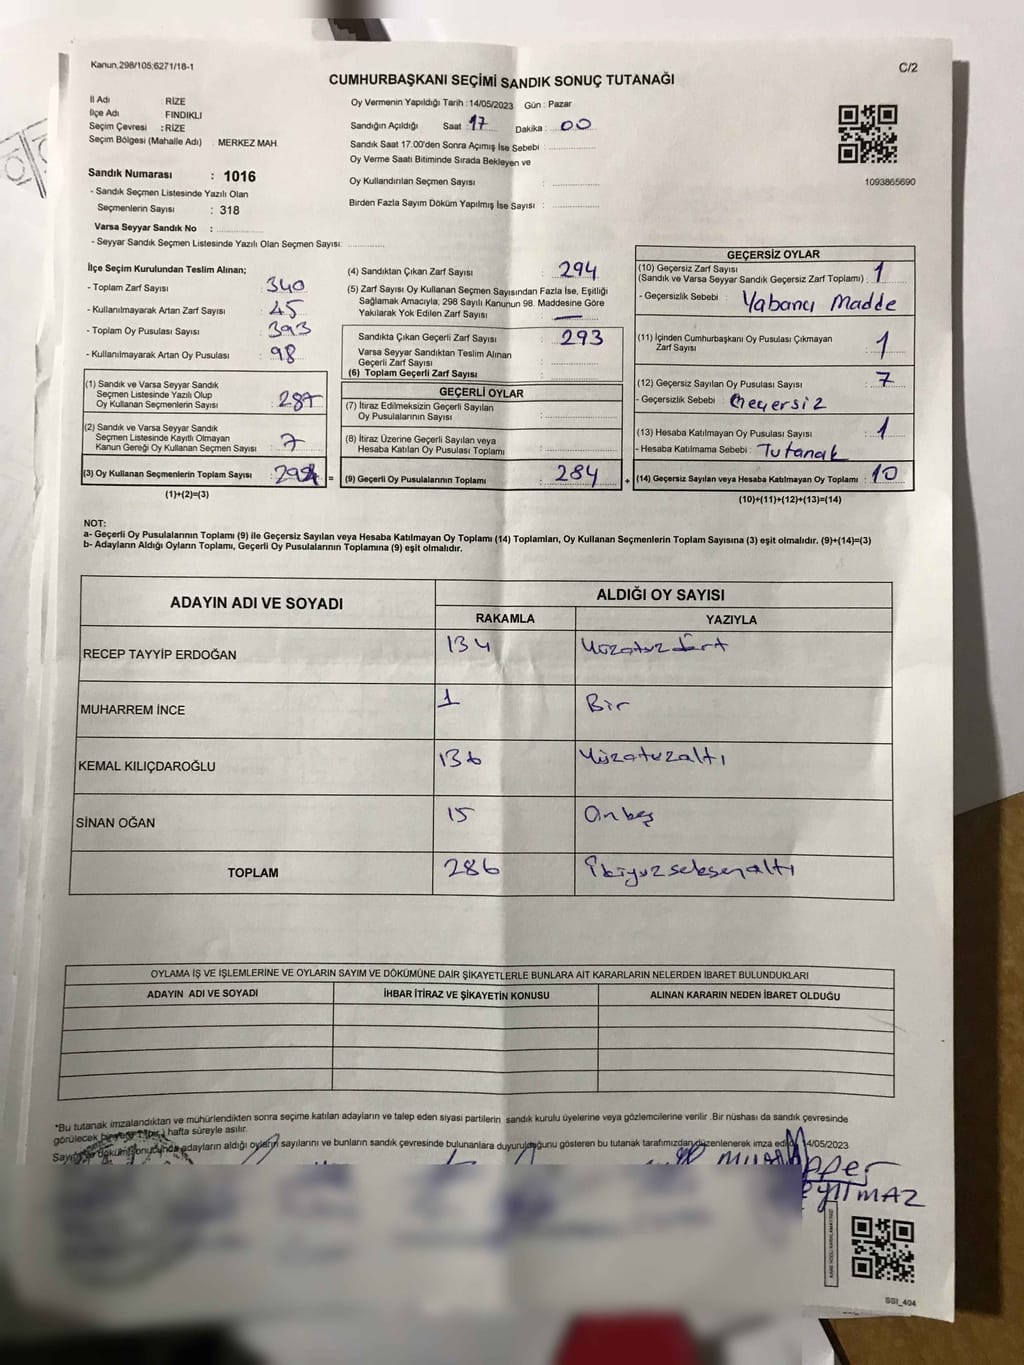 Kanun.298/105;6271/18-1
C/2
CUMHURBAŞKANI SEÇİMİ SANDIK SONUÇ TUTANAĞI
İl Adı : RİZE
İlçe Adı : FINDIKLI
Seçim Çevresi : RİZE
Seçim Bölgesi (Mahalle Adı) : MERKEZ MAH
Sandık Numarası : 1016
- Sandık Seçmen Listesinde Yazılı Olan
Seçmenlerin Sayısı : 318
Varsa Seyyar Sandık No :
- Seyyar Sandık Seçmen Listesinde Yazılı Olan Seçmen Sayısı:
Oy Vermenin Yapıldığı Tarih : 14/05/2023 Gün : Pazar
Sandığın Açıldığı Saat : 17 Dakika : 00
Sandık Saat 17.00'den Sonra Açımış İse Sebebi :
Oy Verme Saati Bitiminde Sırada Bekleyen ve
Oy Kullandırılan Seçmen Sayısı :
Birden Fazla Sayım Döküm Yapılmış İse Sayısı :
1093865690
İlçe Seçim Kurulundan Teslim Alınan;
- Toplam Zarf Sayısı : 340
- Kullanılmayarak Artan Zarf Sayısı : 45
- Toplam Oy Pusulası Sayısı : 393
- Kullanılmayarak Artan Oy Pusulası : 98
(1) Sandık ve Varsa Seyyar Sandık
Seçmen Listesinde Yazılı Olup
Oy Kullanan Seçmenlerin Sayısı : 287
(2) Sandık ve Varsa Seyyar Sandık
Seçmen Listesinde Kayıtlı Olmayan
Kanun Gereği Oy Kullanan Seçmen Sayısı : 7
(3) Oy Kullanan Seçmenlerin Toplam Sayısı : 294 =
(1)+(2)=(3)
(4) Sandıktan Çıkan Zarf Sayısı : 294
(5) Zarf Sayısı Oy Kullanan Seçmen Sayısından Fazla İse, Eşitliği
Sağlamak Amacıyla, 298 Sayılı Kanunun 98. Maddesine Göre
Yakılarak Yok Edilen Zarf Sayısı : —
Sandıkta Çıkan Geçerli Zarf Sayısı : 293
Varsa Seyyar Sandıktan Teslim Alınan
Geçerli Zarf Sayısı :
(6) Toplam Geçerli Zarf Sayısı :
GEÇERLİ OYLAR
(7) İtiraz Edilmeksizin Geçerli Sayılan
Oy Pusulalarının Sayısı :
(8) İtiraz Üzerine Geçerli Sayılan veya
Hesaba Katılan Oy Pusulaları Toplamı :
(9) Geçerli Oy Pusulalarının Toplamı : 284 +
GEÇERSİZ OYLAR
(10) Geçersiz Zarf Sayısı
(Sandık ve Varsa Seyyar Sandık Geçersiz Zarf Toplamı) : 1
- Geçersizlik Sebebi : Yabancı Madde
(11) İçinden Cumhurbaşkanı Oy Pusulası Çıkmayan
Zarf Sayısı : 1
(12) Geçersiz Sayılan Oy Pusulası Sayısı : 7
- Geçersizlik Sebebi : Geçersiz
(13) Hesaba Katılmayan Oy Pusulası Sayısı : 1
- Hesaba Katılmama Sebebi : Tutanak
(14) Geçersiz Sayılan veya Hesaba Katılmayan Oy Toplamı : 10
(10)+(11)+(12)+(13)=(14)
NOT:
a- Geçerli Oy Pusulalarının Toplamı (9) ile Geçersiz Sayılan veya Hesaba Katılmayan Oy Toplamı (14) Toplamları, Oy Kullanan Seçmenlerin Toplam Sayısına (3) eşit olmalıdır. (9)+(14)=(3)
b- Adayların Aldığı Oyların Toplamı, Geçerli Oy Pusulalarının Toplamına (9) eşit olmalıdır.
ADAYIN ADI VE SOYADI
ALDIĞI OY SAYISI
RAKAMLA YAZIYLA
RECEP TAYYİP ERDOĞAN 134 Yüzotuzdört
MUHARREM İNCE 1 Bir
KEMAL KILIÇDAROĞLU 136 Yüzotuzaltı
SİNAN OĞAN 15 Onbeş
TOPLAM 286 İkiyüzseksenaltı
OYLAMA İŞ VE İŞLEMLERİNE VE OYLARIN SAYIM VE DÖKÜMÜNE DAİR ŞİKAYETLERLE BUNLARA AİT KARARLARIN NELERDEN İBARET BULUNDUKLARI
ADAYIN ADI VE SOYADI İHBAR İTİRAZ VE ŞİKAYETİN KONUSU ALINAN KARARIN NEDEN İBARET OLDUĞU
*Bu tutanak imzalandıktan ve mühürlendikten sonra seçime katılan adayların ve talep eden siyasi partilerin sandık kurulu üyelerine veya gözlemcilerine verilir .Bir nüshası da sandık çevresinde
görülecek bir yere (bir) hafta süreyle asılır.
Sayım ve döküm sonucunda adayların aldığı oyların sayılarını ve bunların sandık çevresinde bulunanlara duyurulduğunu gösteren bu tutanak tarafımızdan düzenlenerek imza edildi. 14/05/2023
YILMAZ
SSI_404